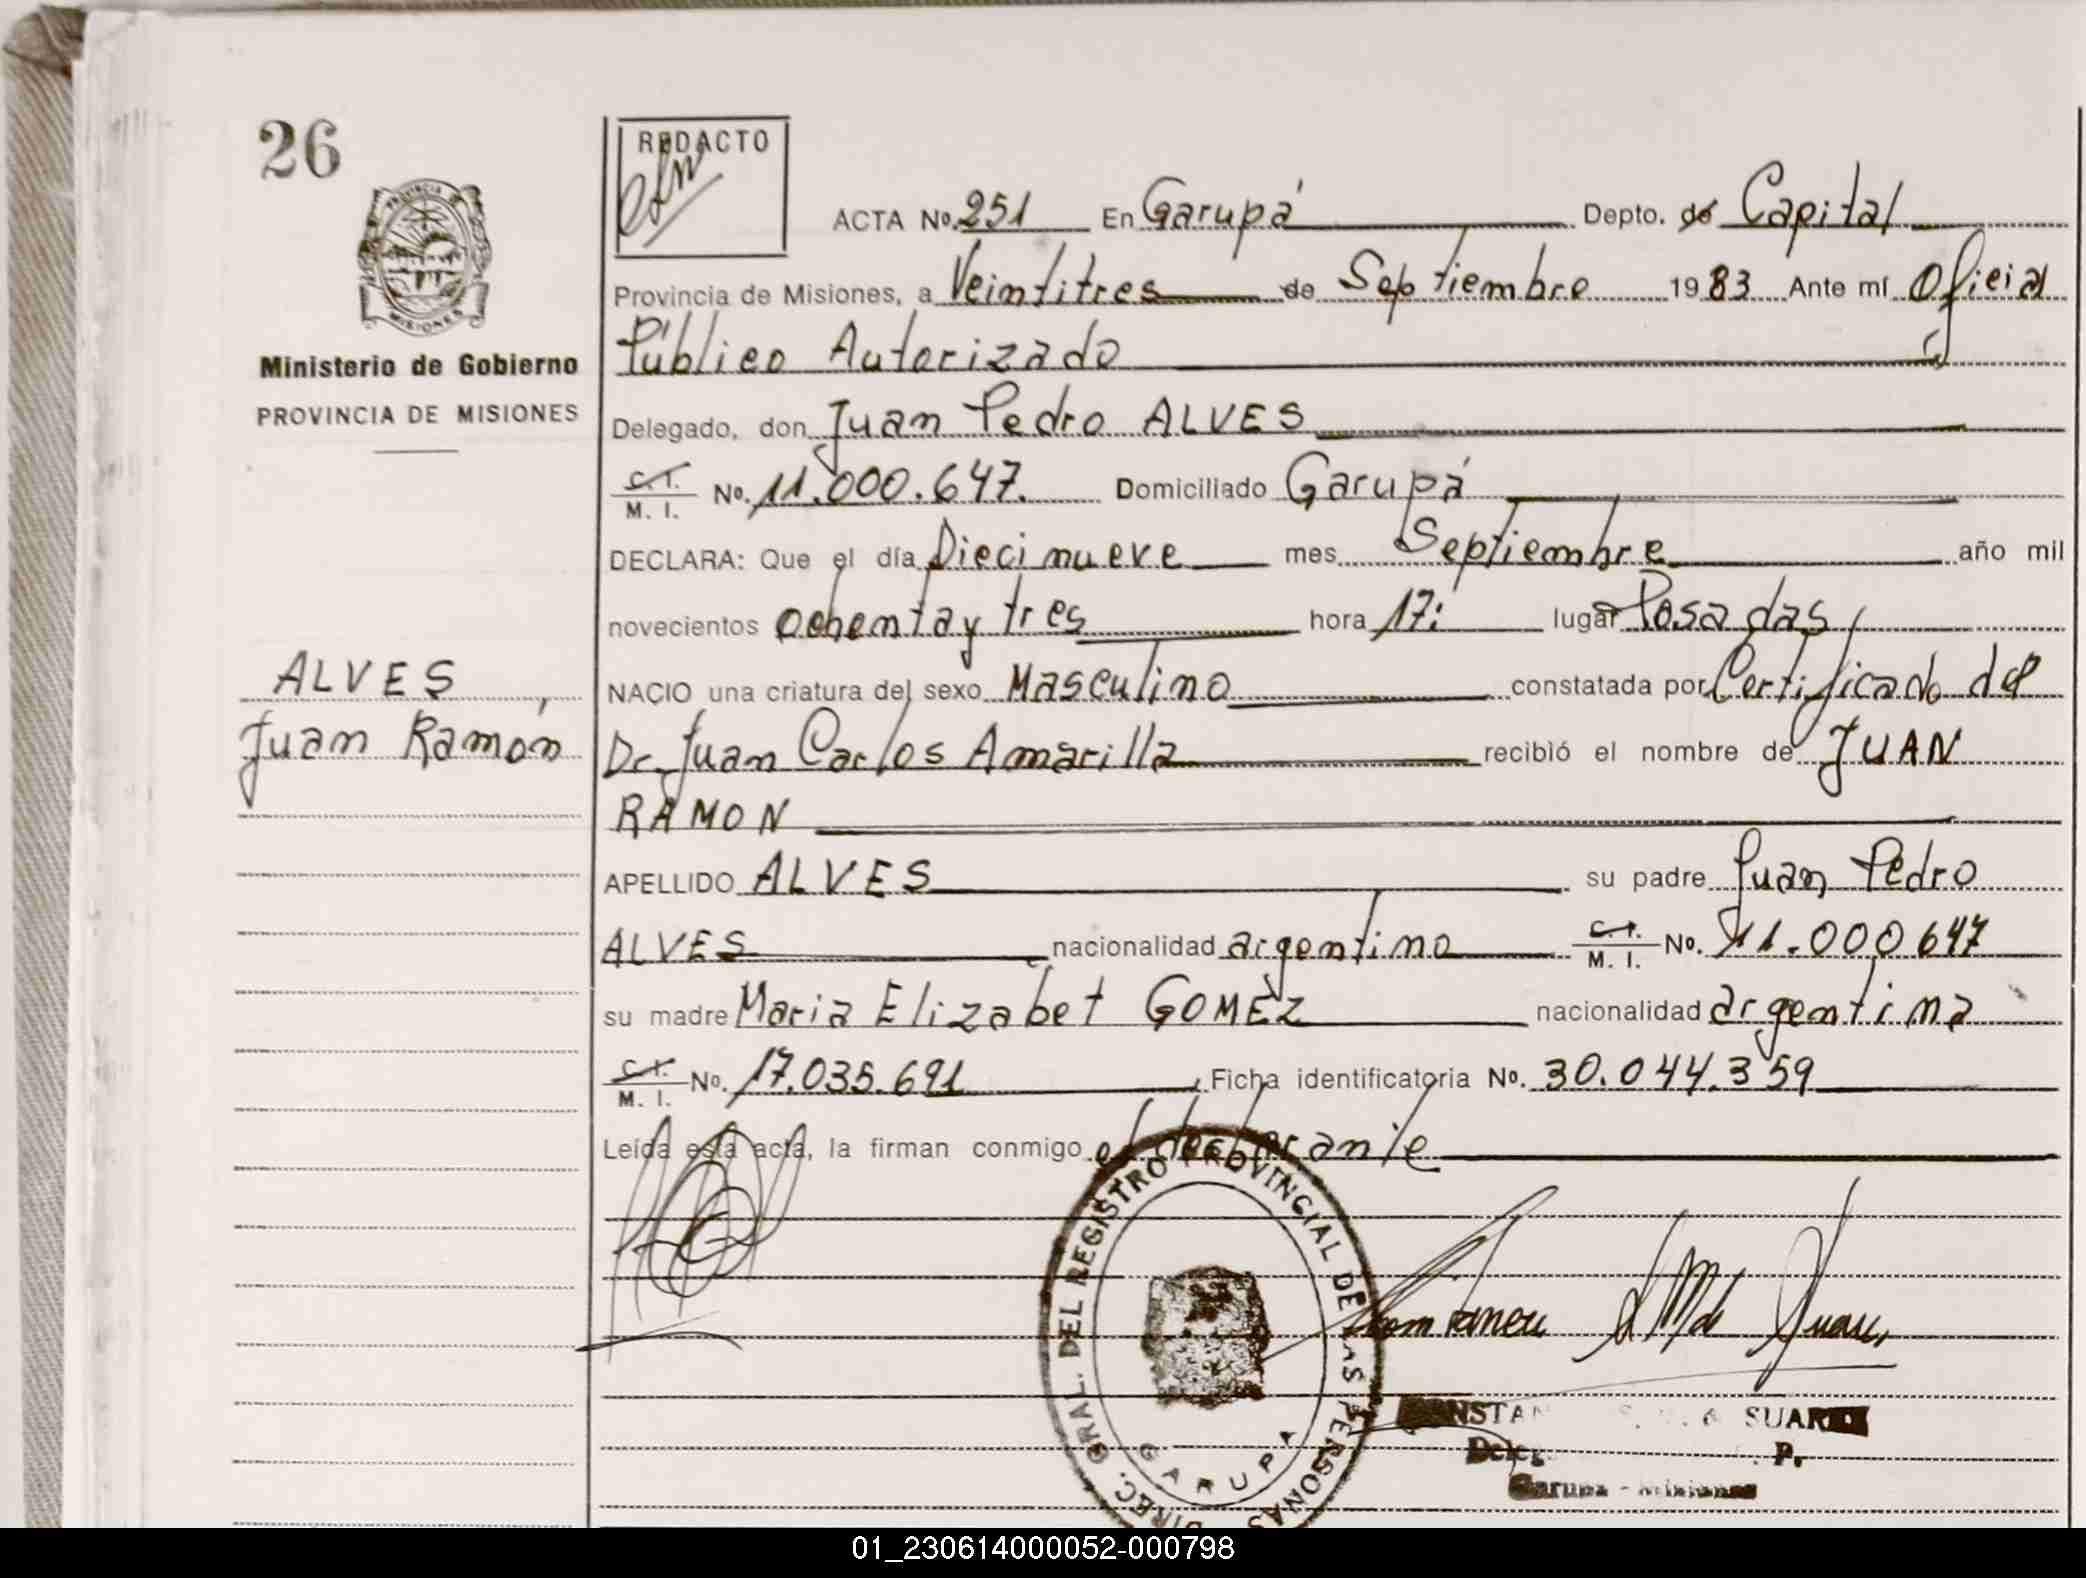 26
REDACTO
PROVINCIA DE
MISIONES
Ministerio de Gobierno
PROVINCIA DE MISIONES
ACTA No. 251 En Garupá Depto. de Capital
Provincia de Misiones, a Veintitres de Septiembre 1983 Ante mí Oficial
Público Autorizado
Delegado, don Juan Pedro ALVES
C. I. / M. I. No. 11.000.647. Domiciliado Garupá
DECLARA: Que el día Diecinueve mes Septiembre año mil
novecientos ochenta y tres hora 17: lugar Posadas
ALVES,
NACIO una criatura del sexo Masculino constatada por Certificado del
Juan Ramón
Dr. Juan Carlos Amarilla recibió el nombre de JUAN
RAMON
APELLIDO ALVES su padre Juan Pedro
ALVES nacionalidad argentino C. I. / M. I. No. 11.000647
su madre Maria Elizabet GOMEZ nacionalidad argentina
C. I. / M. I. No. 17.035.691, Ficha identificatoria No. 30.044.359
Leída esta acta, la firman conmigo el declarante
DIREC. GRAL. DEL REGISTRO PROVINCIAL DE LAS PERSONAS
GARUPA
SUAREZ
Deleg P.
Garupa - Misiones
01_230614000052-000798